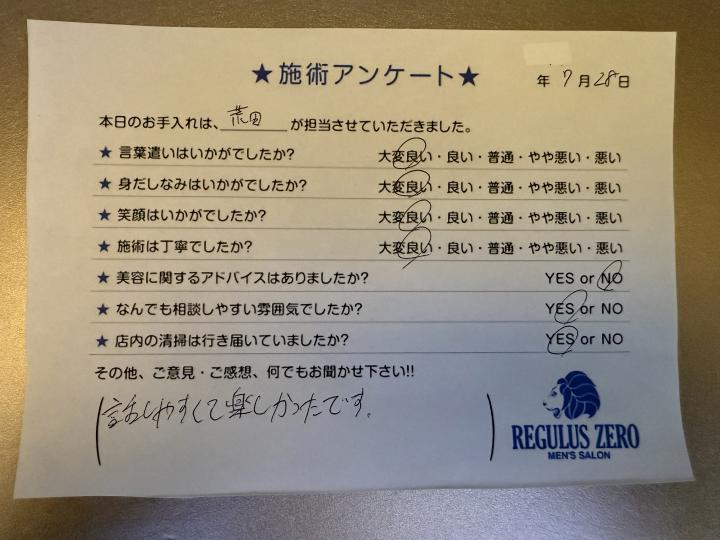 ★施術アンケート★
年 7月28日
本日のお手入れは、荒田が担当させていただきました。
★ 言葉遣いはいかがでしたか? 大変良い・良い・普通・やや悪い・悪い
★ 身だしなみはいかがでしたか? 大変良い・良い・普通・やや悪い・悪い
★ 笑顔はいかがでしたか? 大変良い・良い・普通・やや悪い・悪い
★ 施術は丁寧でしたか? 大変良い・良い・普通・やや悪い・悪い
★ 美容に関するアドバイスはありましたか? YES or NO
★ なんでも相談しやすい雰囲気でしたか? YES or NO
★ 店内の清掃は行き届いていましたか? YES or NO
その他、ご意見・ご感想、何でもお聞かせ下さい!!
(話しやすくて楽しかったです。)
REGULUS ZERO
MEN'S SALON